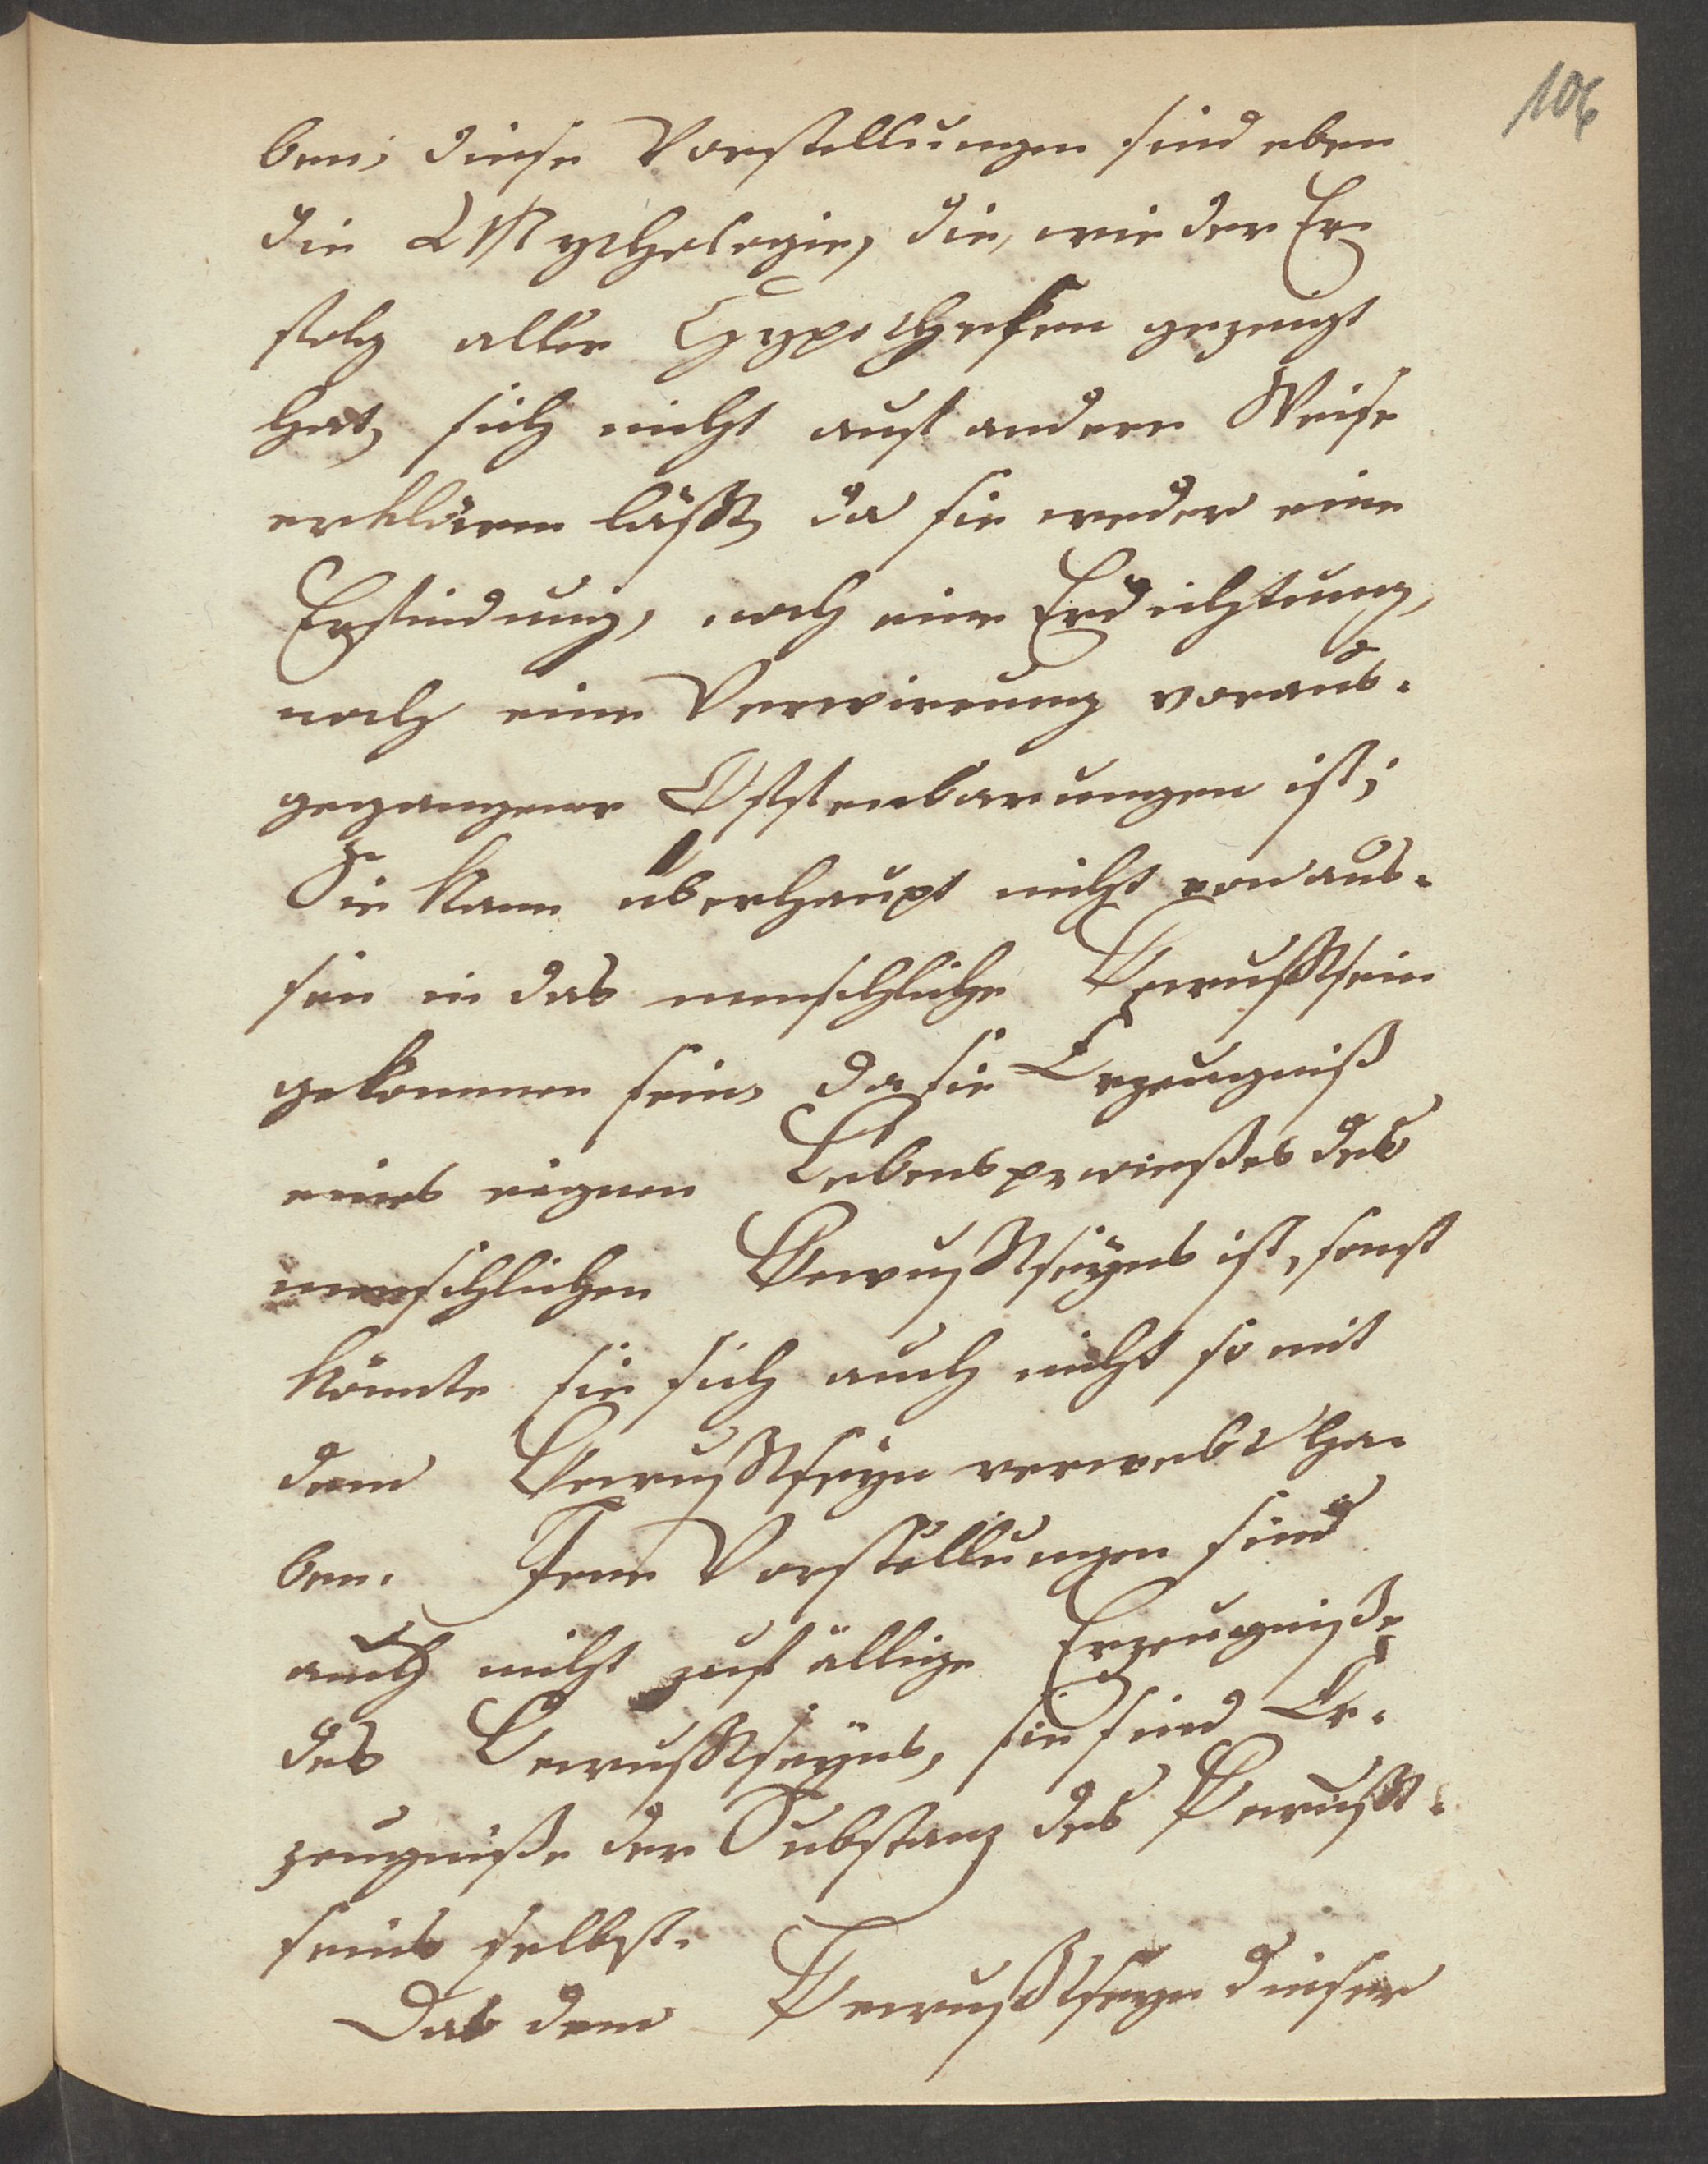 106
ben; diese Vorstellungen sind eben
die Mythologie, die, wie der Er-
folg aller Hypothesen gezeigt
hat, sich nicht auf andere Weise
erklären läßt, da sie weder eine
Erfindung, noch eine Erdichtung,
noch eine Verwirrung voraus-
gegangener Offenbarungen ist;
Sie kann überhaupt nicht von aus-
sen in das menschliche Bewußtsein
gekommen sein, da sie Erzeugniß
eines eignen Lebensprocesses des
menschlichen Bewußtseyns ist, sonst
könnte sie sich auch nicht so mit
dem Bewußtseyn verwebt ha-
ben. Jene Vorstellungen sind
auch nicht zufällige Erzeugniße
des Bewußtseyns, sie sind Er-
zeugniße der Substanz des Bewußt-
seins selbst.
Das dem Bewußtseyn dieser